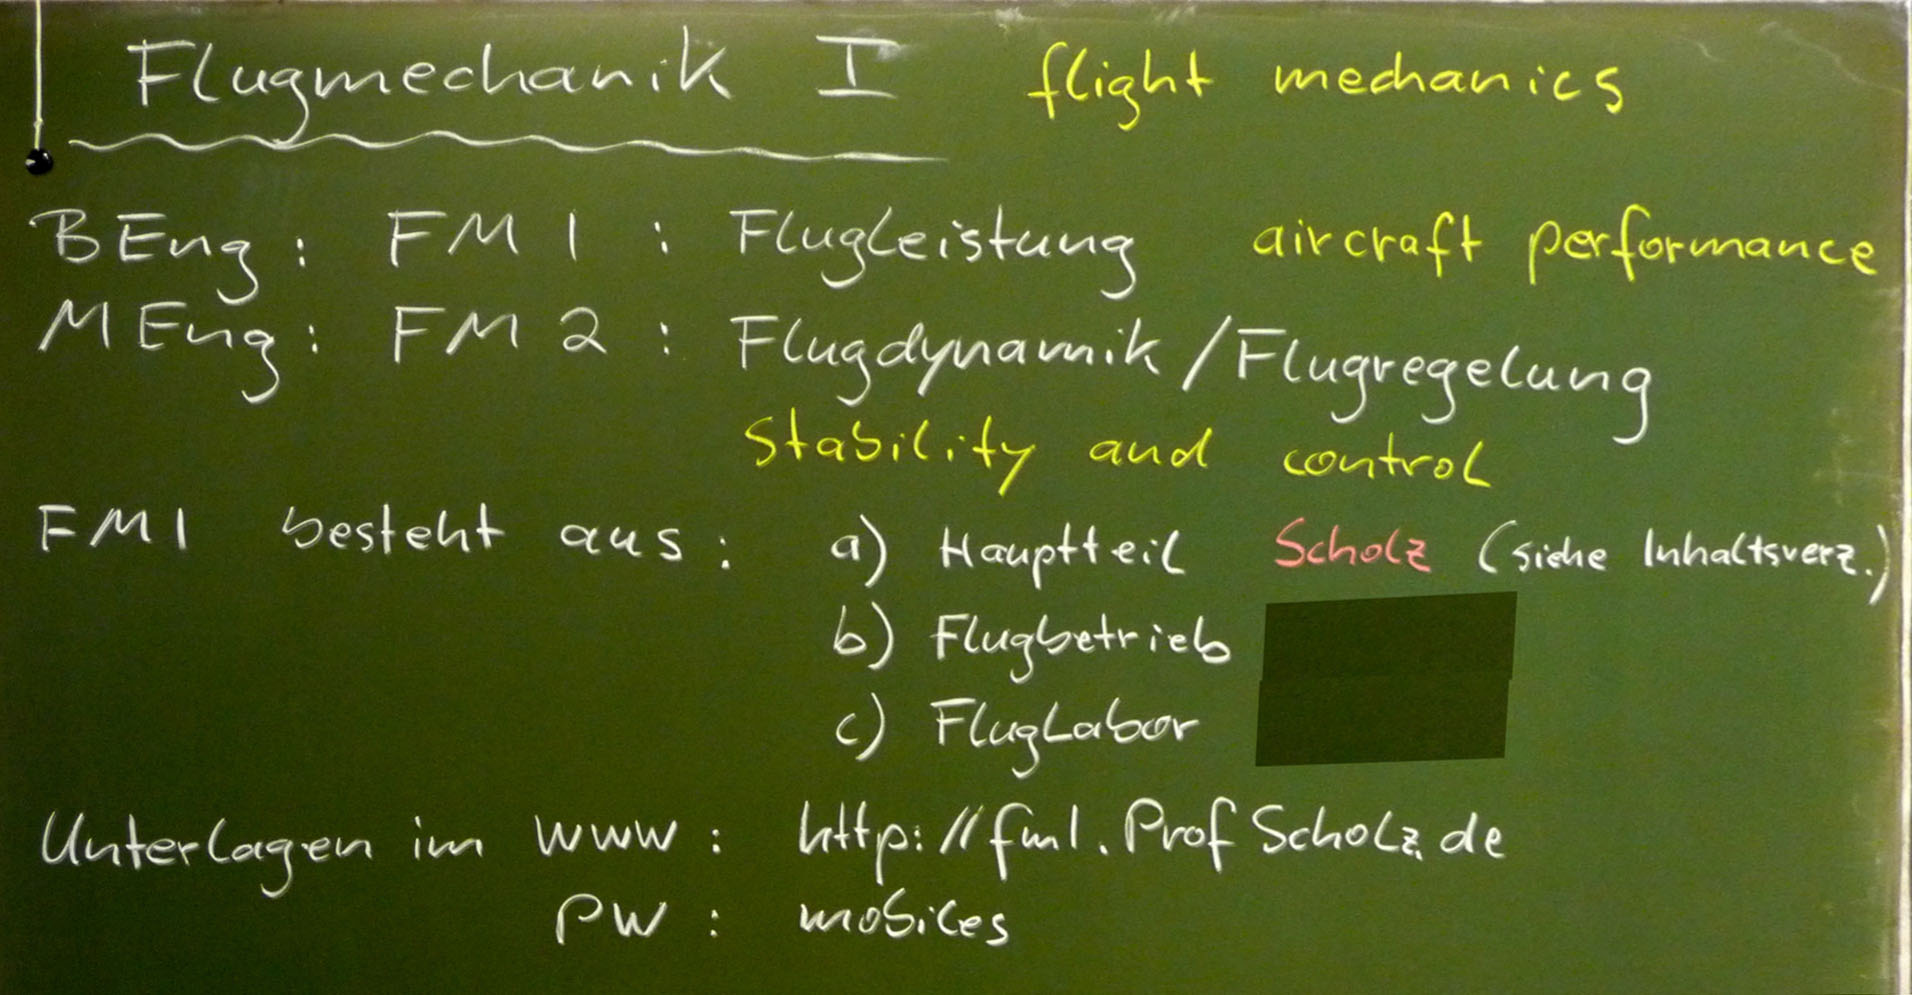 Flugmechanik I flight mechanics
BEng: FM 1 : Flugleistung aircraft performance
MEng: FM 2 : Flugdynamik/Flugregelung
stability and control
FM1 besteht aus: a) Hauptteil Scholz (siehe Inhaltsverz.)
b) Flugbetrieb
c) Fluglabor
Unterlagen im WWW : http://fm1.ProfScholz.de
PW : mobiles